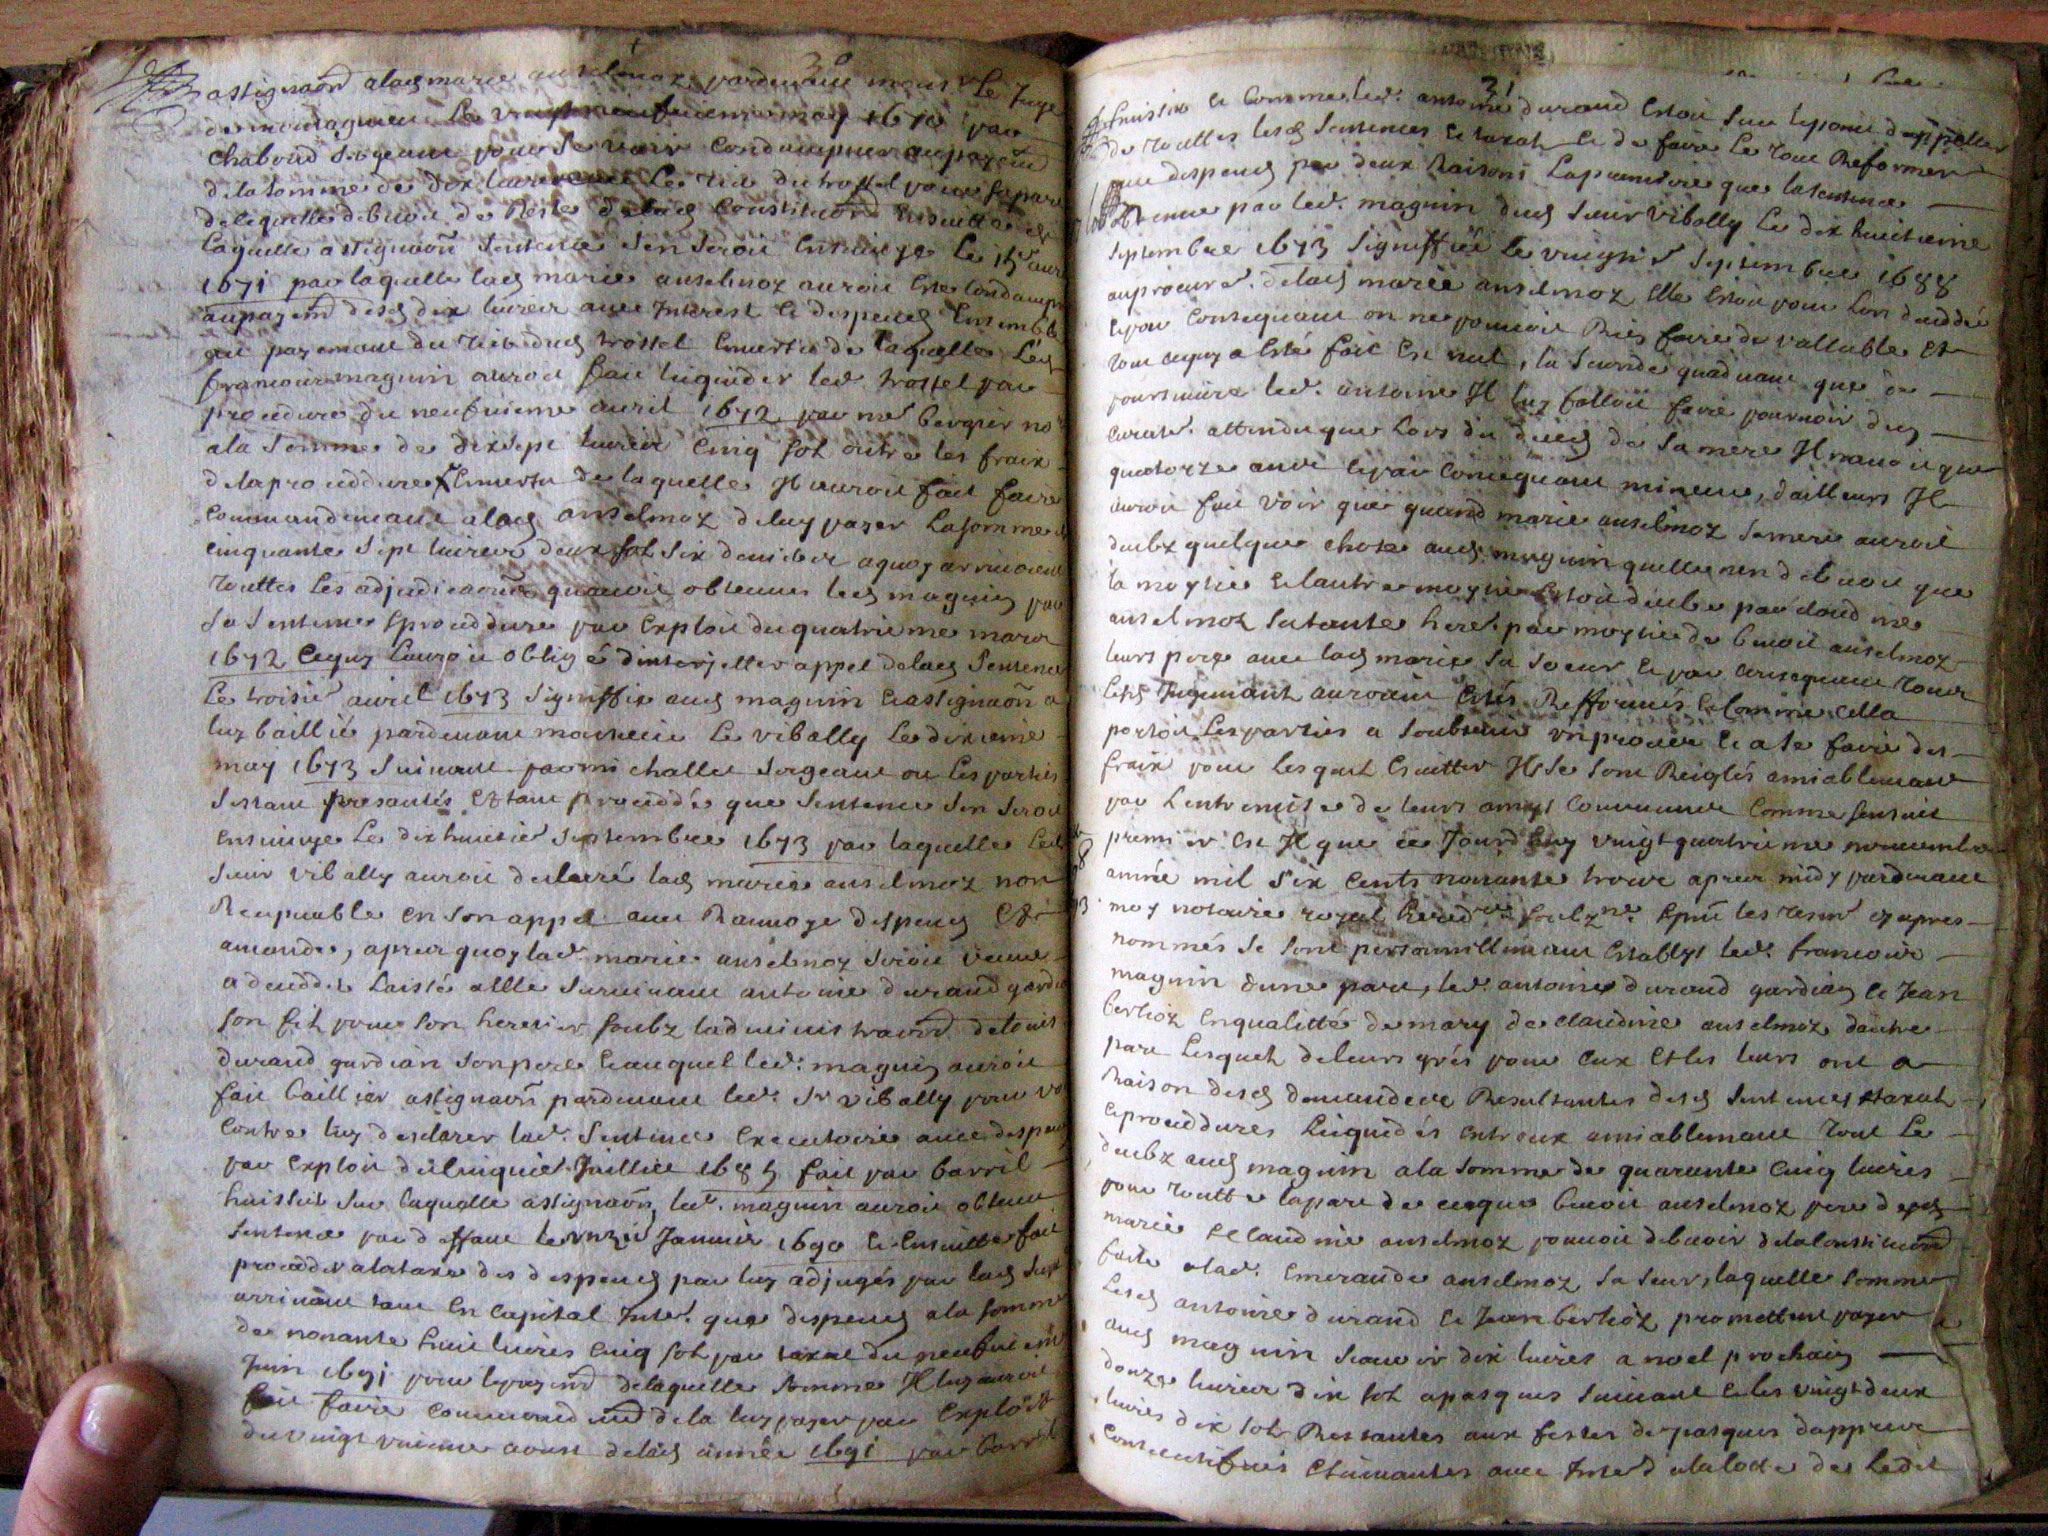 30
assignaõn alad marie anselmoz pardevant mons. Le Juge
de le vingt neufvieme may 1670 par
chaboud sergeant pour se voir condampner au payem̃t
de la somme de dix livres avec le du trossel pour sa part
de laquelle debvoit de Reste de lad constituõn Ensuitte de
laquelle assignaõn sentence s'en seroit ensuivye le 15e avril
1671 par laquelle lad marie anselmoz auroit esté condampnée
au payem̃t desd dix livres avec Interest et despens Ensemble
au payemant du dud trossel En vertu de laquelle Led
francois maguin auroit fait liquider led. trossel par
procedure du neufvieme avril 1672 par me bergier no
a la somme de dix sept livres cinq sol outre les fraix
de la proceddure En vertu de laquelle Il auroit fait faire
commandemant a lad anselmoz de luy payer la somme de
cinquante sept livres deux sol six denier a quoy arrivoient
touttes les adjudicaõns quavoit obtenues led maguin par
sa sentence proceddure par exploit du quatrieme mars
1672 ce quy l'auroit obligé d'interjetter appel de lad sentence
Le troisie avril 1673 signiffié aud maguin et assignaõn a
luy baillié pardevant le vibally le dixieme
may 1673 suivant par michallet sergeant ou les parties
sestant presantés et tant proceddé que sentence s'en seroit
ensuivye le dix huitie septembre 1673 par laquelle led
sieur vibally auroit declaré lad marie anselmoz non
Recepvable en son appel avec despens et
amande, apres quoy lad. marie anselmoz seroit venue
a decedder Laissé elle survivant antoine durand gardian
son fil pour son heretier soubz ladministraõn de louis
durand gardian son pere et auquel led: maguin auroit
fait baillier assignaõn pardevant led. Sr vibally pour voir
contre luy desclarer lad. sentence executoire avec despens
par exploit du cinquie Juillet 1685 fait par barril
huissier sur laquelle assignaõn led. maguin auroit obtenu
sentence par deffaut le unzie Janvier 1690 et Ensuitte fait
procedder a la taxe des despens par luy adjugés par lad sent
arrivant tant en capital Inte. que despens a la somme
de nonante huit livres cinq sol par taxat du neufvieme
Juin 1691 pour le payem̃t de laquelle somme Il luy auroit
fait faire commandem̃t de la luy payer par exploit
du vingt aoust de lad année 1691 par barril
31
huissier et comme led. antoine durand estoit sur le point dappeller
de touttes lesd sentences et taxat et de faire le tout Reformer
avec despens par deux Raisons La premiere que la sentence
obtenue par led. maguin dud sieur vibally le dix huitieme
septembre 1673 signiffiée le vingt septembre 1688
au procure. de lad marie anselmoz elle estoit pour lors deceddée
et par consequant on ne pouvoit Rien faire de vallable et
tout ce quy a esté fait est nul, la seconde quadvant que de
poursuivre led. antoine Il luy falloit faire pourvoir dun
curate. attendu que lors du deces de sa mere Il navoit que
quatorze ans et par consequant mineur, dailleurs Il
auroit fait voir que quand marie anselmoz sa mere auroit
deubz quelque chose aud maguin quelle nen debvoit que
la moytié et lautre moytié estoit deube par claudine
anselmoz sa tante here. par moytié de benoit anselmoz
leurs pere avec lad marie sa soeur et par consequant tous
lesd Jugemant auroint estés Refformés et comme cella
portoit les parties a soubtenir un proces et a se faire des
fraix pour lesquel esvitter Ils se sont Reiglés amiablemant
par lentremise de leurs amys communs comme sensuit
premier est Il que ce Jourdhuy vingt quatrieme novembre
année mil six cents nonante trois apres midy pardevant
moy notaire royal heredre. soubzne. et pnt les tesm̃s cy apres
nommés se sont personnellemant establys led. francois
maguin dune part, led. antoine durand gardian et Jean
berlioz en qualitté de mary de claudine anselmoz dautre
part lesquels de leurs grés pour eux et les leurs ont a
Raison desd demandes Resultantes desd sentences taxat
et proceddures Liquidés entreux amiablemant tout le
deubz aud maguin a la somme de quarante cinq livres
pour toutte la part de ce que benoit anselmoz pere desd
marie et claudine anselmoz pouvoit debvoir de la constituõn
faite a lad. emerande anselmoz sa seur, laquelle somme
lesd antoine durand et Jean berlioz promettent payer
aud maguin scavoir dix livres a noel prochain
douze livres dix sol a pasques suivant et les vingt deux
livres dix sol Restantes aux festes de pasques dappres
consecutifves et suivantes avec Inte.